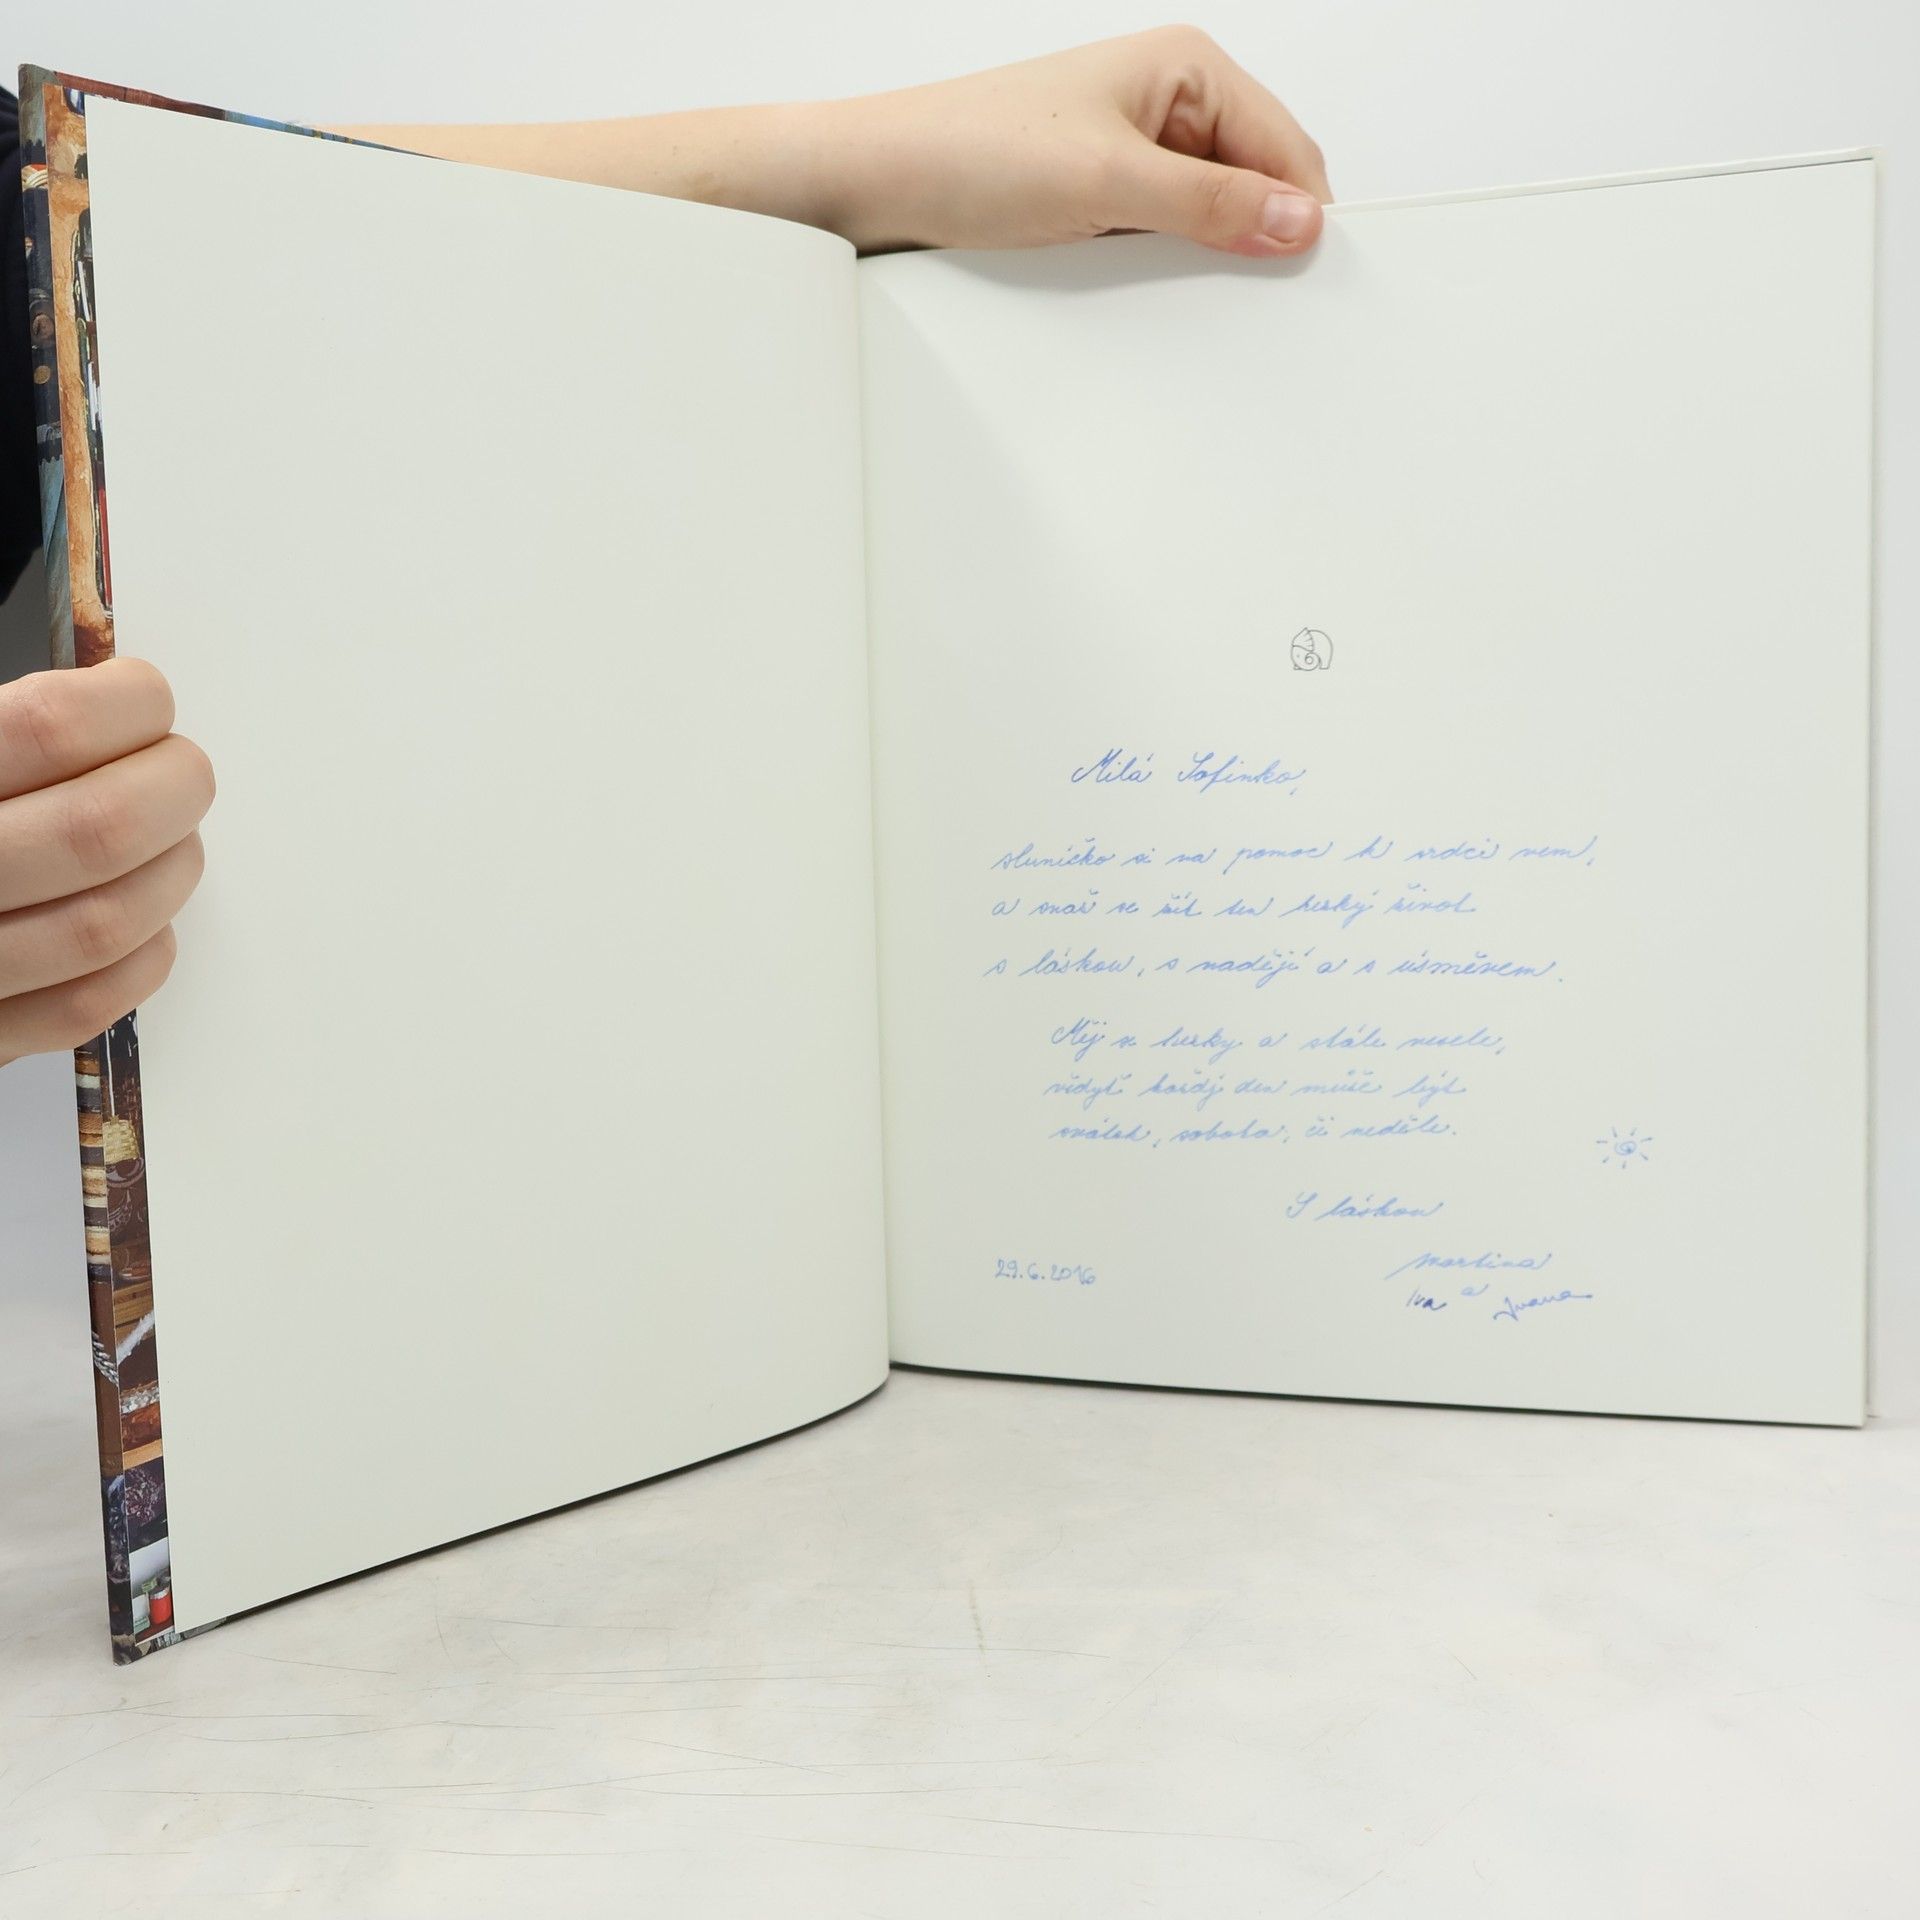 Milá Sofinko,
sluníčko si na pomoc k srdci vem,
a snaž se žít ten hezký život
s láskou, s nadějí a s úsměvem.
Měj se hezky a stále vesele,
vždyť každý den může být
svátek, sobota, či neděle.
S láskou
29.6.2016
Martina
Iva a Ivana